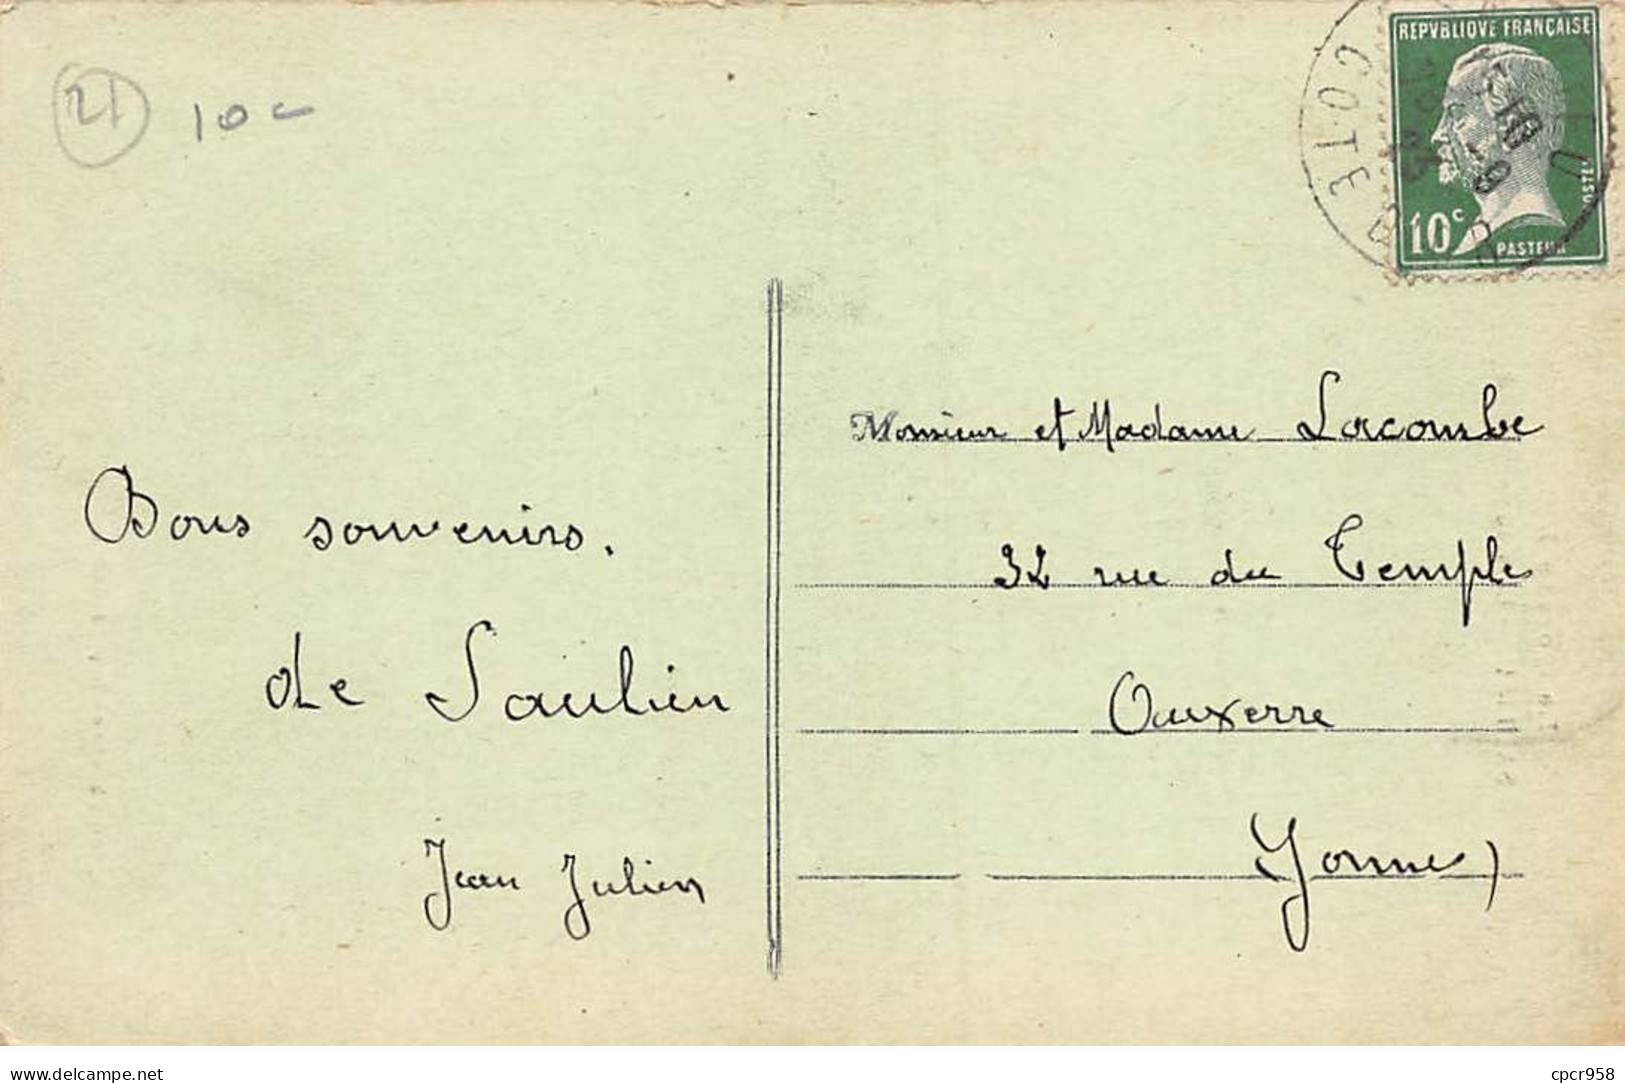 21
10c
REPVBLIQVE FRANÇAISE
10c
PASTEUR
COTE D
Monsieur et Madame Lacombe
32 rue du Temple
Auxerre
Yonne)
Bons souvenirs.
de Saulieu
Jean Julien
www.delcampe.net
cpcr958